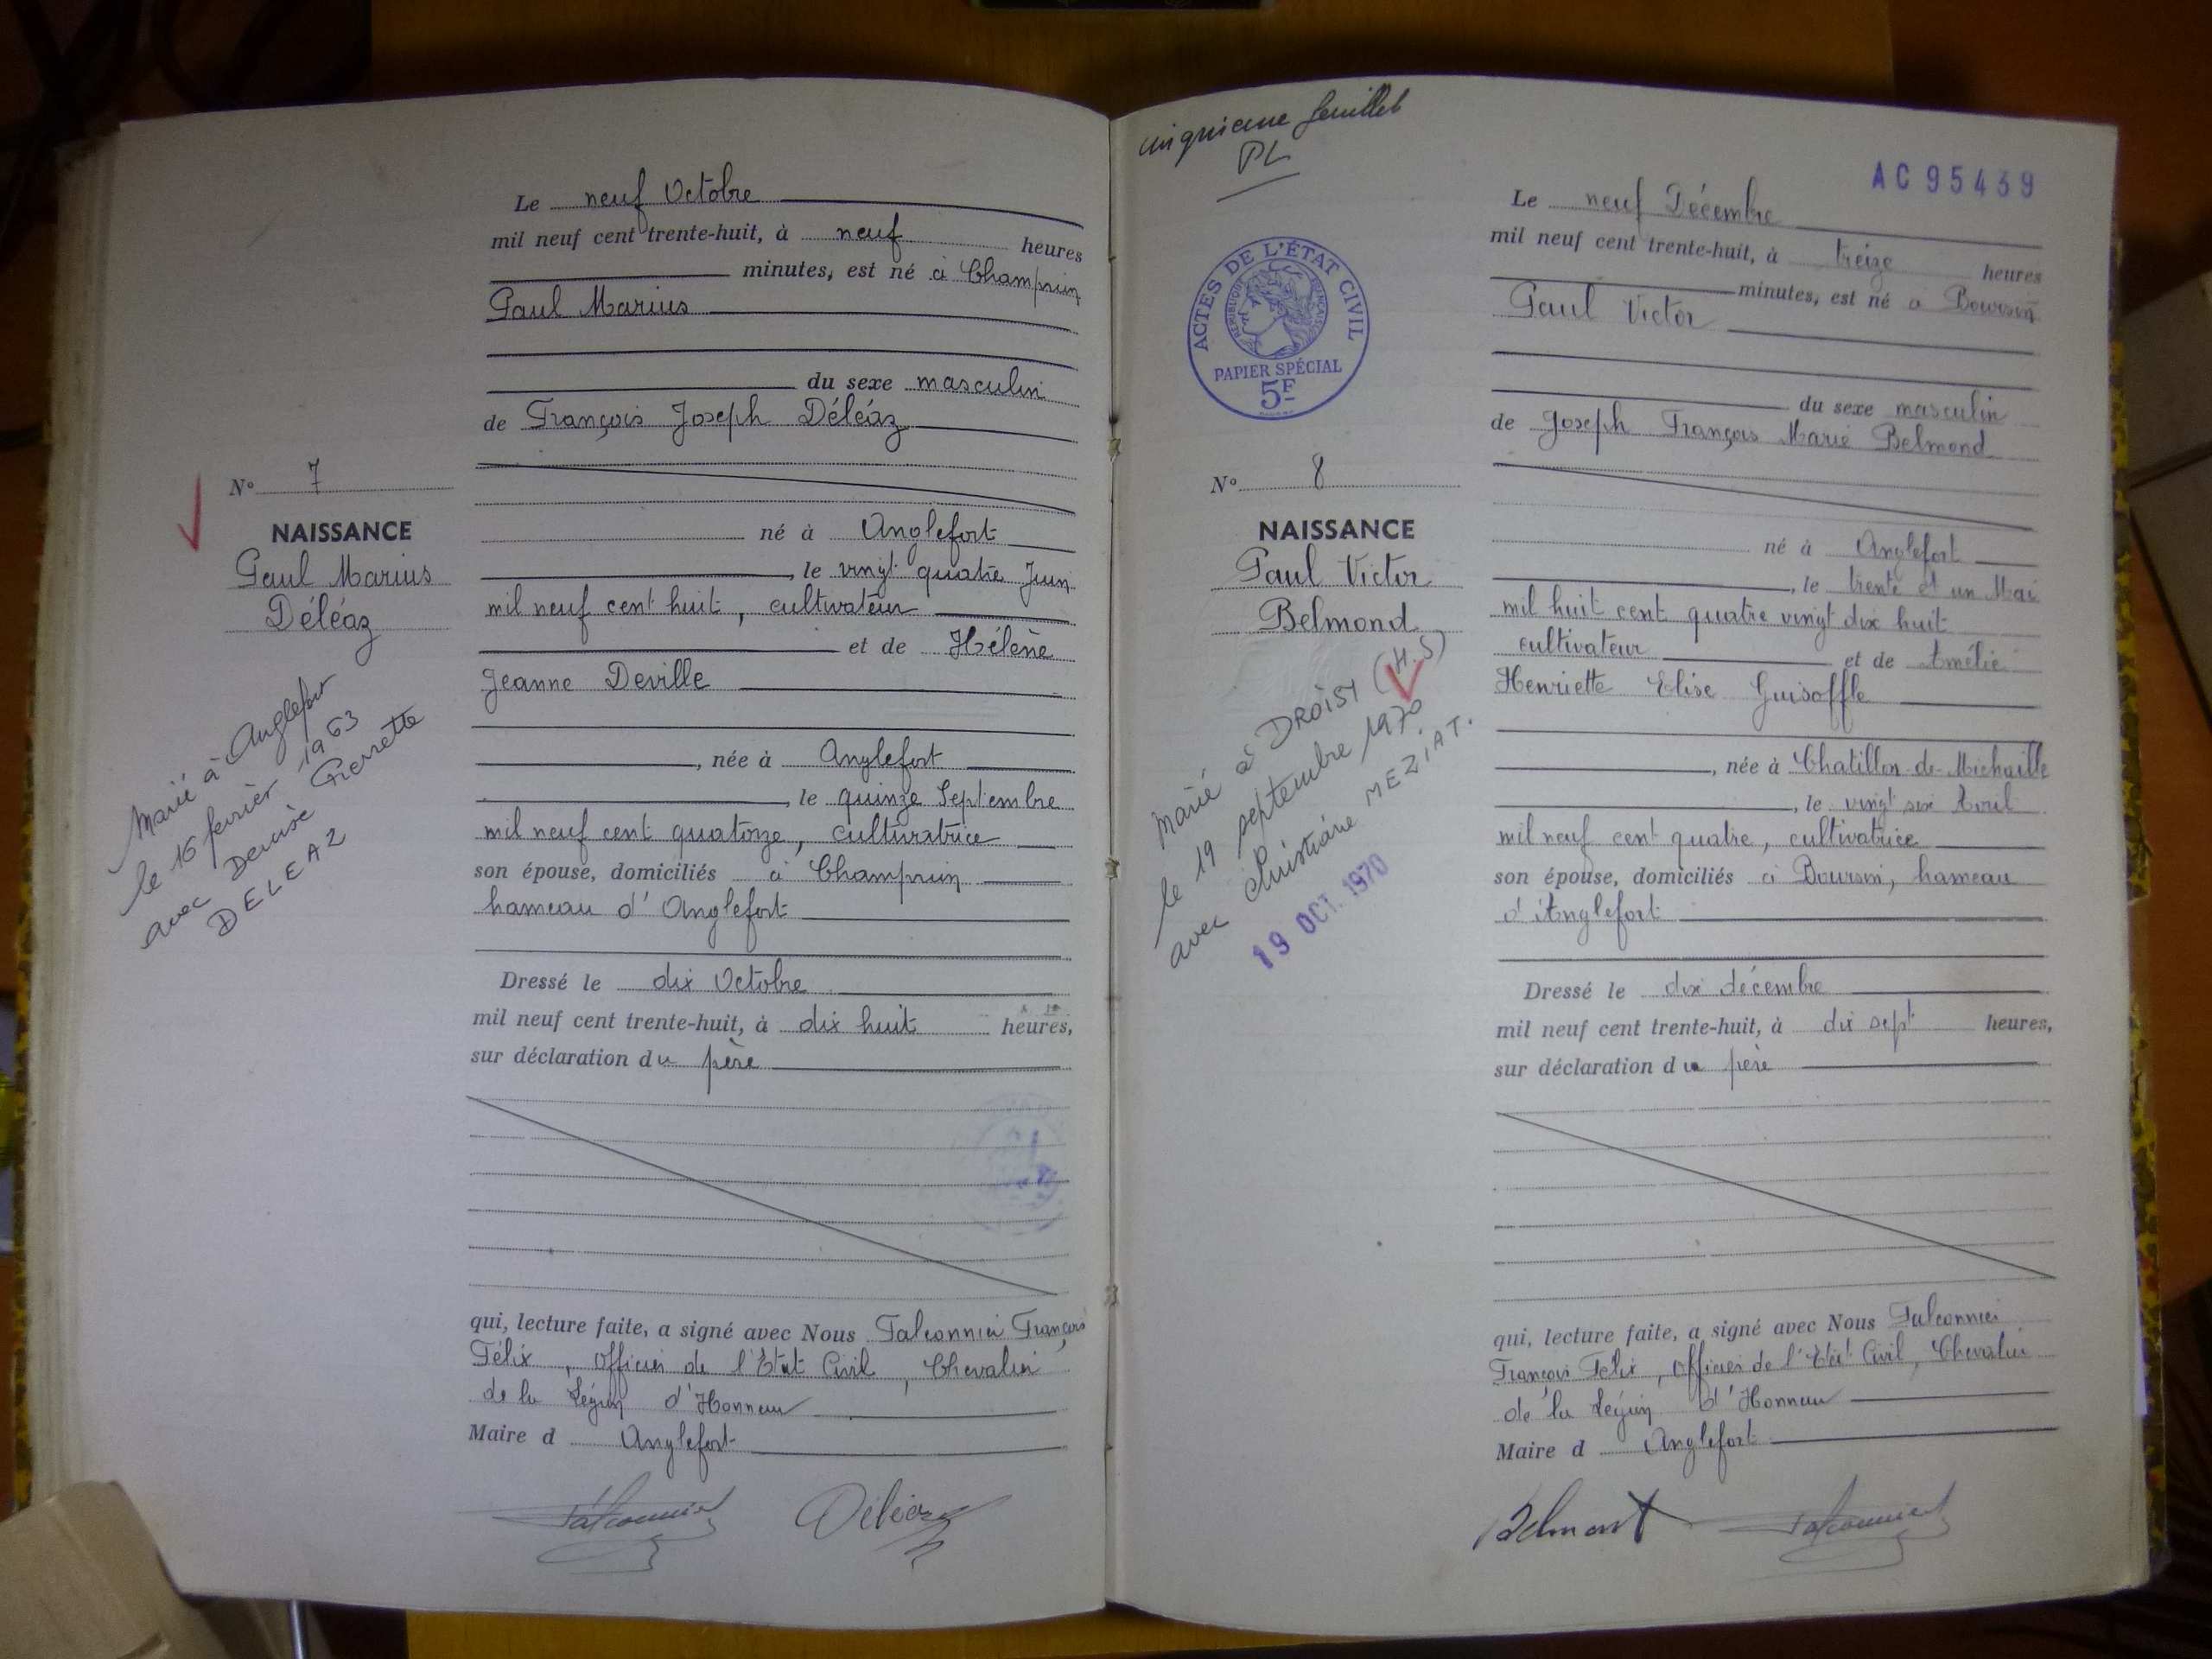 Le neuf Octobre
mil neuf cent trente-huit, à neuf heures
minutes, est né à Champrin
Paul Marius
du sexe masculin
de François Joseph Déléaz
né à Anglefort
, le vingt quatre Juin
mil neuf cent huit, cultivateur
et de Hélène
Jeanne Deville
, née à Anglefort
, le quinze Septembre
mil neuf cent quatorze, cultivatrice
son épouse, domiciliés à Champrin
hameau d'Anglefort
Dressé le dix Octobre
mil neuf cent trente-huit, à dix huit heures,
sur déclaration du père
qui, lecture faite, a signé avec Nous Falconnier François
Félix, officier de l'Etat Civil, Chevalier
de la Légion d'Honneur
Maire d Anglefort
Falconnier Déléaz
N° 7
NAISSANCE
Paul Marius
Déléaz
Marié à Anglefort
le 16 février 1963
avec Denise Pierrette
DELEAZ
cinquième feuillet
PL
AC95439
ACTES DE L'ÉTAT CIVIL
RÉPUBLIQUE FRANÇAISE
PAPIER SPÉCIAL
5F
N° 8
NAISSANCE
Paul Victor
Belmond
Marié à DROISY (H.S)
le 19 septembre 1970
avec Christiane MEZIAT.
19 OCT. 1970
Le neuf Décembre
mil neuf cent trente-huit, à treize heures
minutes, est né à Boursin
Paul Victor
du sexe masculin
de Joseph François Marie Belmond
né à Anglefort
, le trente et un Mai
mil huit cent quatre vingt dix huit
cultivateur et de Amélie
Henriette Elise Guisoffle
, née à Chatillon-de-Michaille
, le vingt six Avril
mil neuf cent quatre, cultivatrice
son épouse, domiciliés à Boursin, hameau
d'Anglefort
Dressé le dix décembre
mil neuf cent trente-huit, à dix sept heures,
sur déclaration du père
qui, lecture faite, a signé avec Nous Falconnier
François Felix, officier de l'Etat Civil, Chevalier
de la Légion d'Honneur
Maire d Anglefort
Belmont Falconnier